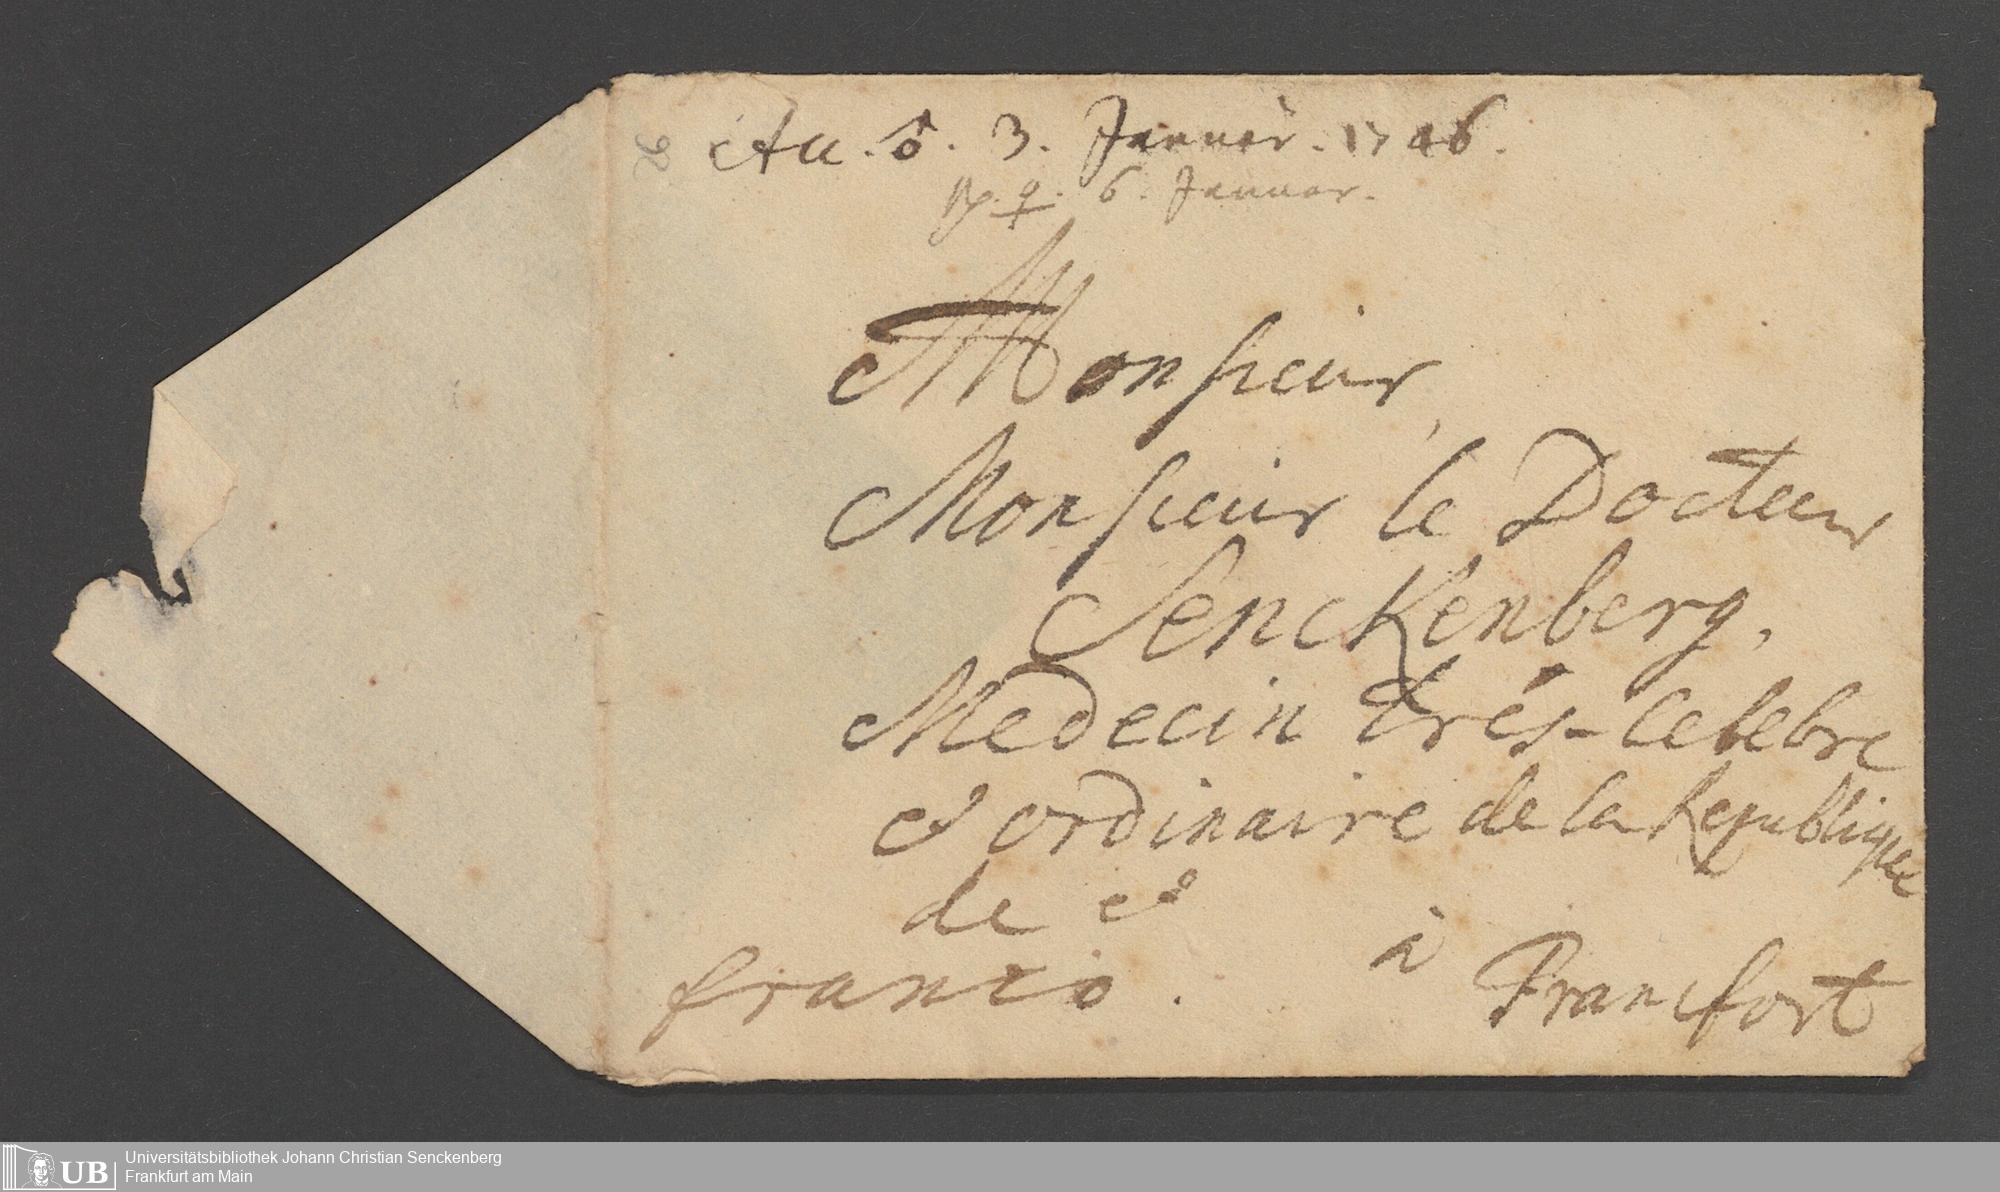 Acc. ♂. 3. Januar. 1746.
rp. ♀. 6. Januar.
Monsieur
Monsieur le Docteur
Senckenberg.
Medecin trés-celebre
et ordinaire de la Republique
de et
à
franco.
Francfort
UB
Universitätsbibliothek Johann Christian Senckenberg
Frankfurt am Main